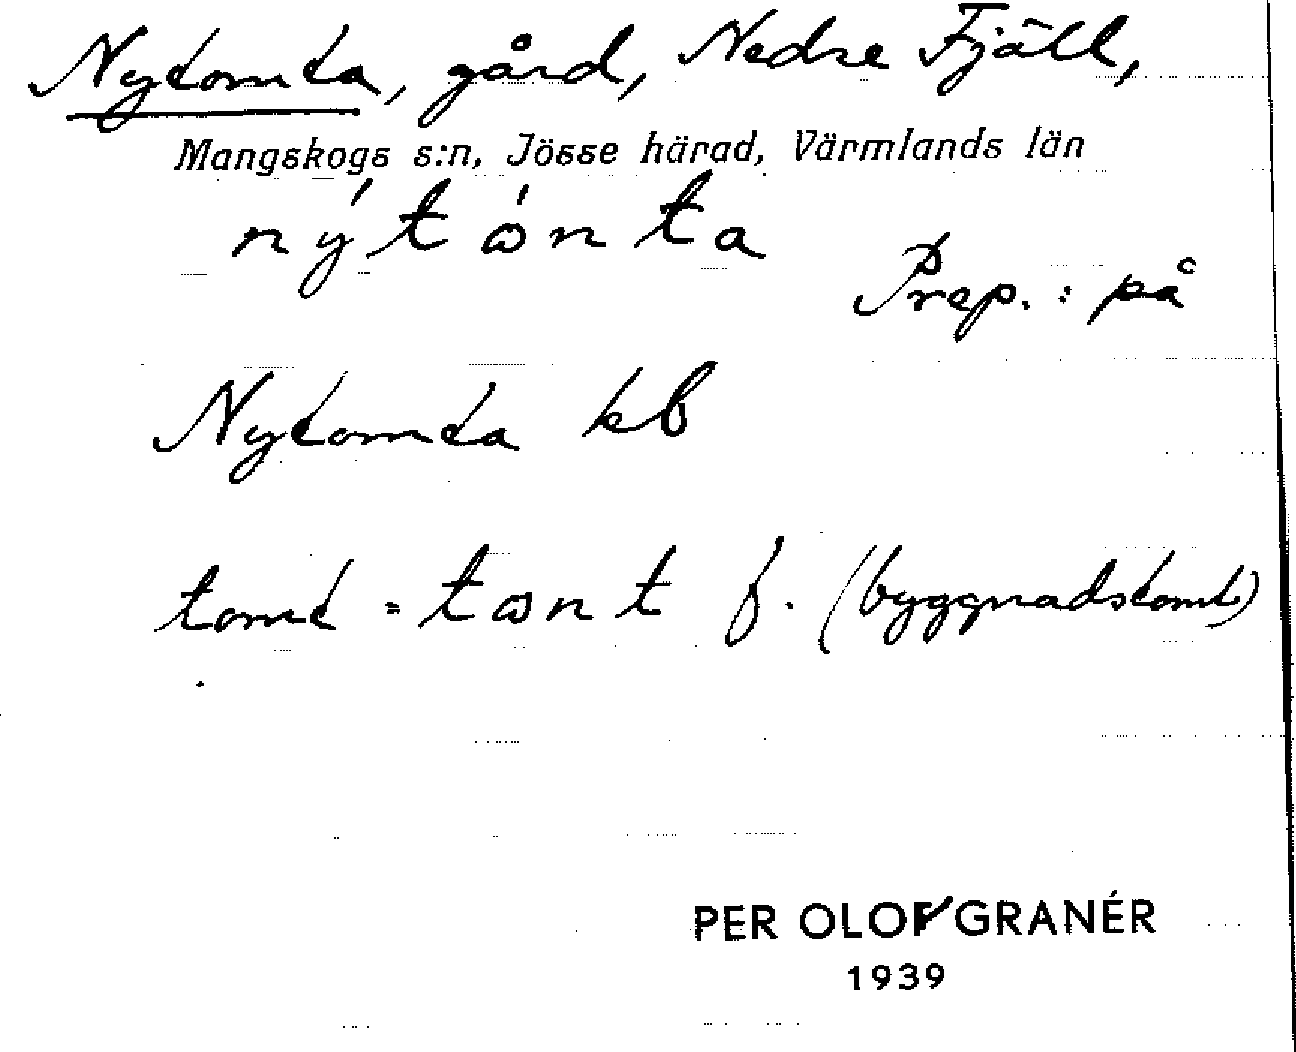 Nytomta, gård, Nedre Fjäll,
Mangskogs s:n, Jösse härad, Värmlands län
nýtónta
Prep. : på
Nytomta kb
tomt = tont f. (byggnadstomt)
PER OLOF GRANÉR
1939